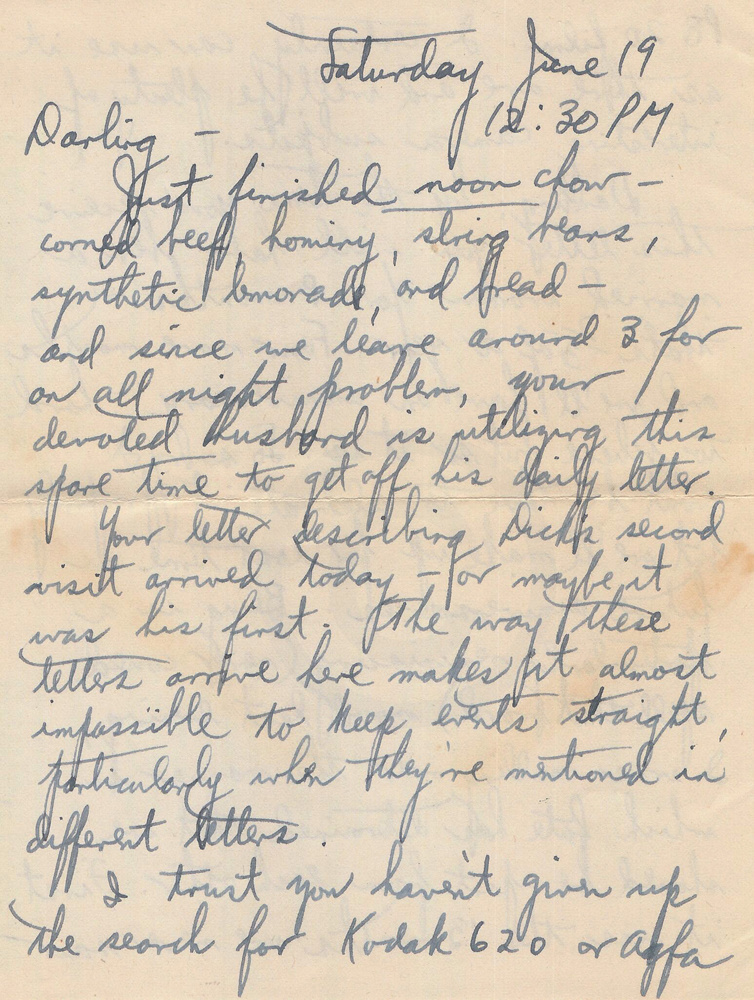 Saturday June 19
12:30 PM
Darling —
Just finished noon chow —
corned beef, hominy, string beans,
synthetic lemonade, and bread —
and since we leave around 3 for
an all night problem, your
devoted husband is utilizing this
spare time to get off his daily letter.
Your letter describing Dick's second
visit arrived today — or maybe it
was his first. The way these
letters arrive here makes it almost
impossible to keep events straight,
particularly when they're mentioned in
different letters.
I trust you haven't given up
the search for Kodak 620 or Agfa